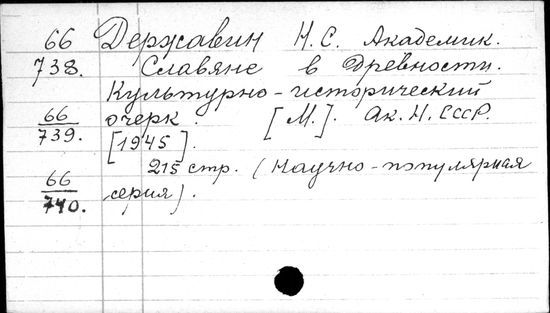 66 Державин Н.С. Академик.
738. Славяне в древности.
Культурно-исторический
66/739. очерк. [М.]. Ак.Н.СССР.
[1945].
215 стр. (Научно-популярная
66/740. серия).